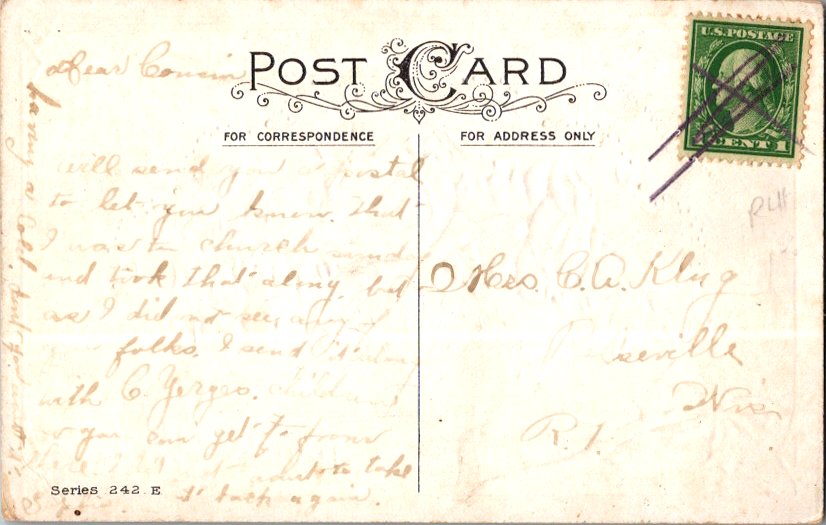 POST CARD
FOR CORRESPONDENCE
FOR ADDRESS ONLY
U.S. POSTAGE
CENT 1
RLH
Dear Cousin
will send you a postal
to let you know that
I was to church sunday
and took that along but
as I did not see any of
your folks, I send it along
with C. Yerges children
so you can get it from
to take
it back again.
having a cold. And
Mrs. C. A. Klug
seville
Wis
R. 1.
Series 242 E